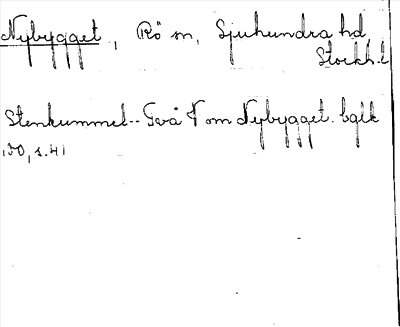 Nybygget, Rö sn, Sjuhundra hd,
Stockh. l
Stenkummel -- Två V om Nybygget. bglk
130, s. 41